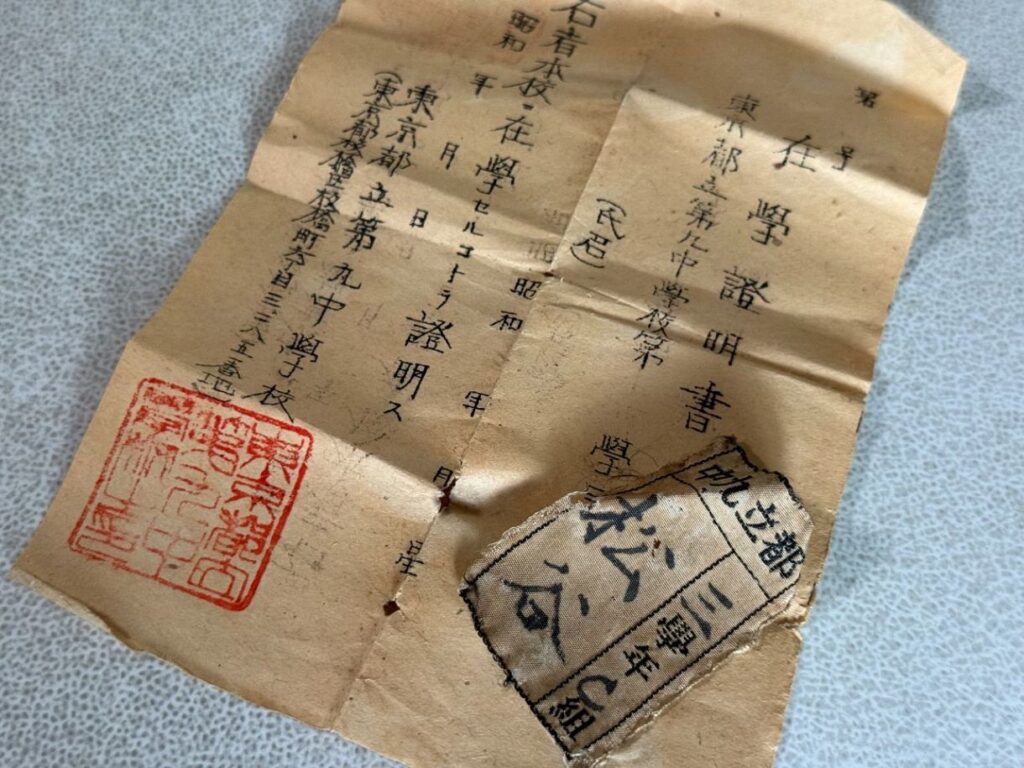 第 号
在學證明書
東京都立第九中學校第 學
(氏名)
右者本校ニ在學セルコトヲ證明ス
昭和 年 月 日
昭和 年 月
東京都立第九中學校
(東京都板橋區板橋町六ノ目三,二八五番地
東京都立
第九中
都立九
三學年C組
松谷